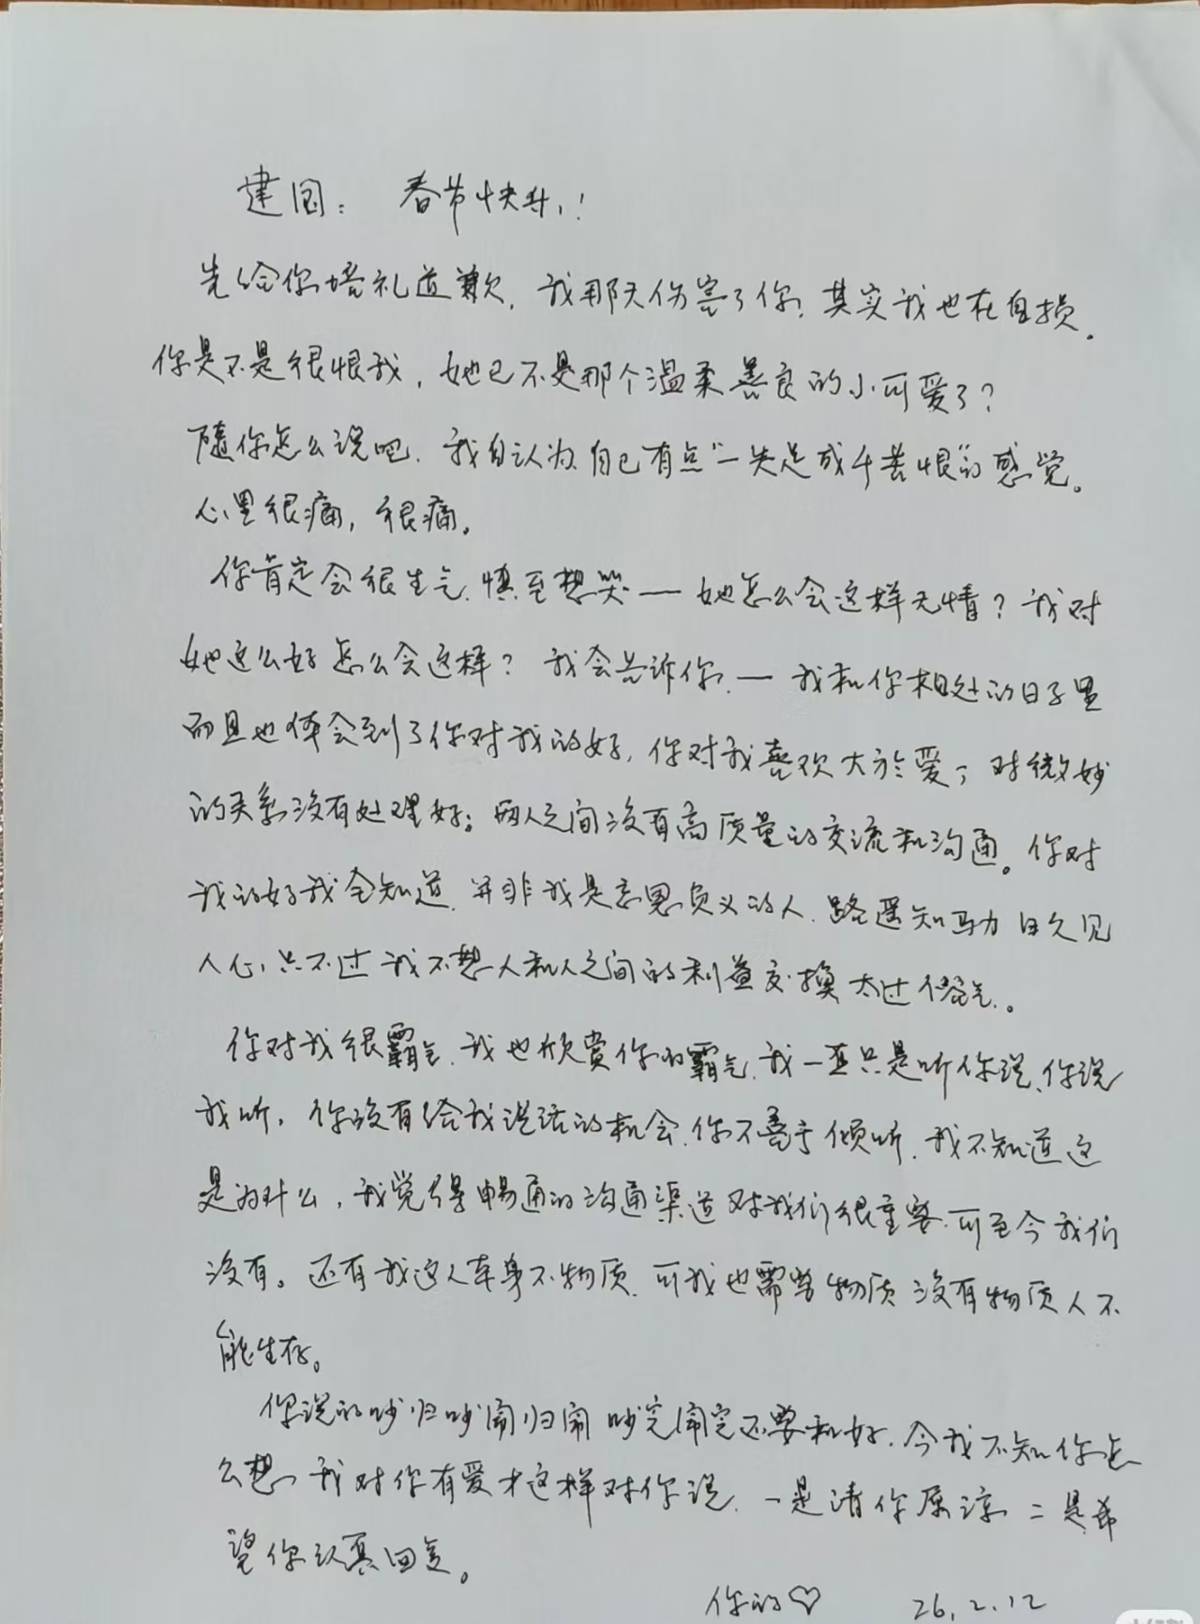 建国： 春节快乐！
先给你赔礼道歉，我那天伤害了你，其实我也在自损。
你是不是很恨我，她已不是那个温柔善良的小可爱了？
随你怎么说吧，我自认为自己有点“一失足成千苦恨”的感觉。
心里很痛，很痛。
你肯定会很生气，慎至想哭——她怎么会这样无情？我对
她这么好怎么会这样？我会告诉你，—我和你相处的日子里
而且也体会到了你对我的好，你对我喜欢大於爱，对微妙
的关系没有处理好。两人之间没有高质量的交流和沟通。你对
我的好我全知道，并非我是忘恩负义的人，路遥知马力 日久见
人心，只不过我不想人和人之间的利益交换太过俗气。
你对我很霸气，我也欣赏你的霸气，我一直只是听你说，你说
我听，你没有给我说话的机会，你不善于倾听，我不知道这
是为什么，我觉得畅通的沟通渠道对我们很重要，可至今我们
没有。还有我这人本身不物质，可我也需当物质 没有物质人不
能生存。
你说的吵归吵闹归闹 吵完闹完还要和好，今我不知你怎
么想，我对你有爱才这样对你说，一是请你原谅 二是希
望你认真回复。
你的♡ 26.2.12